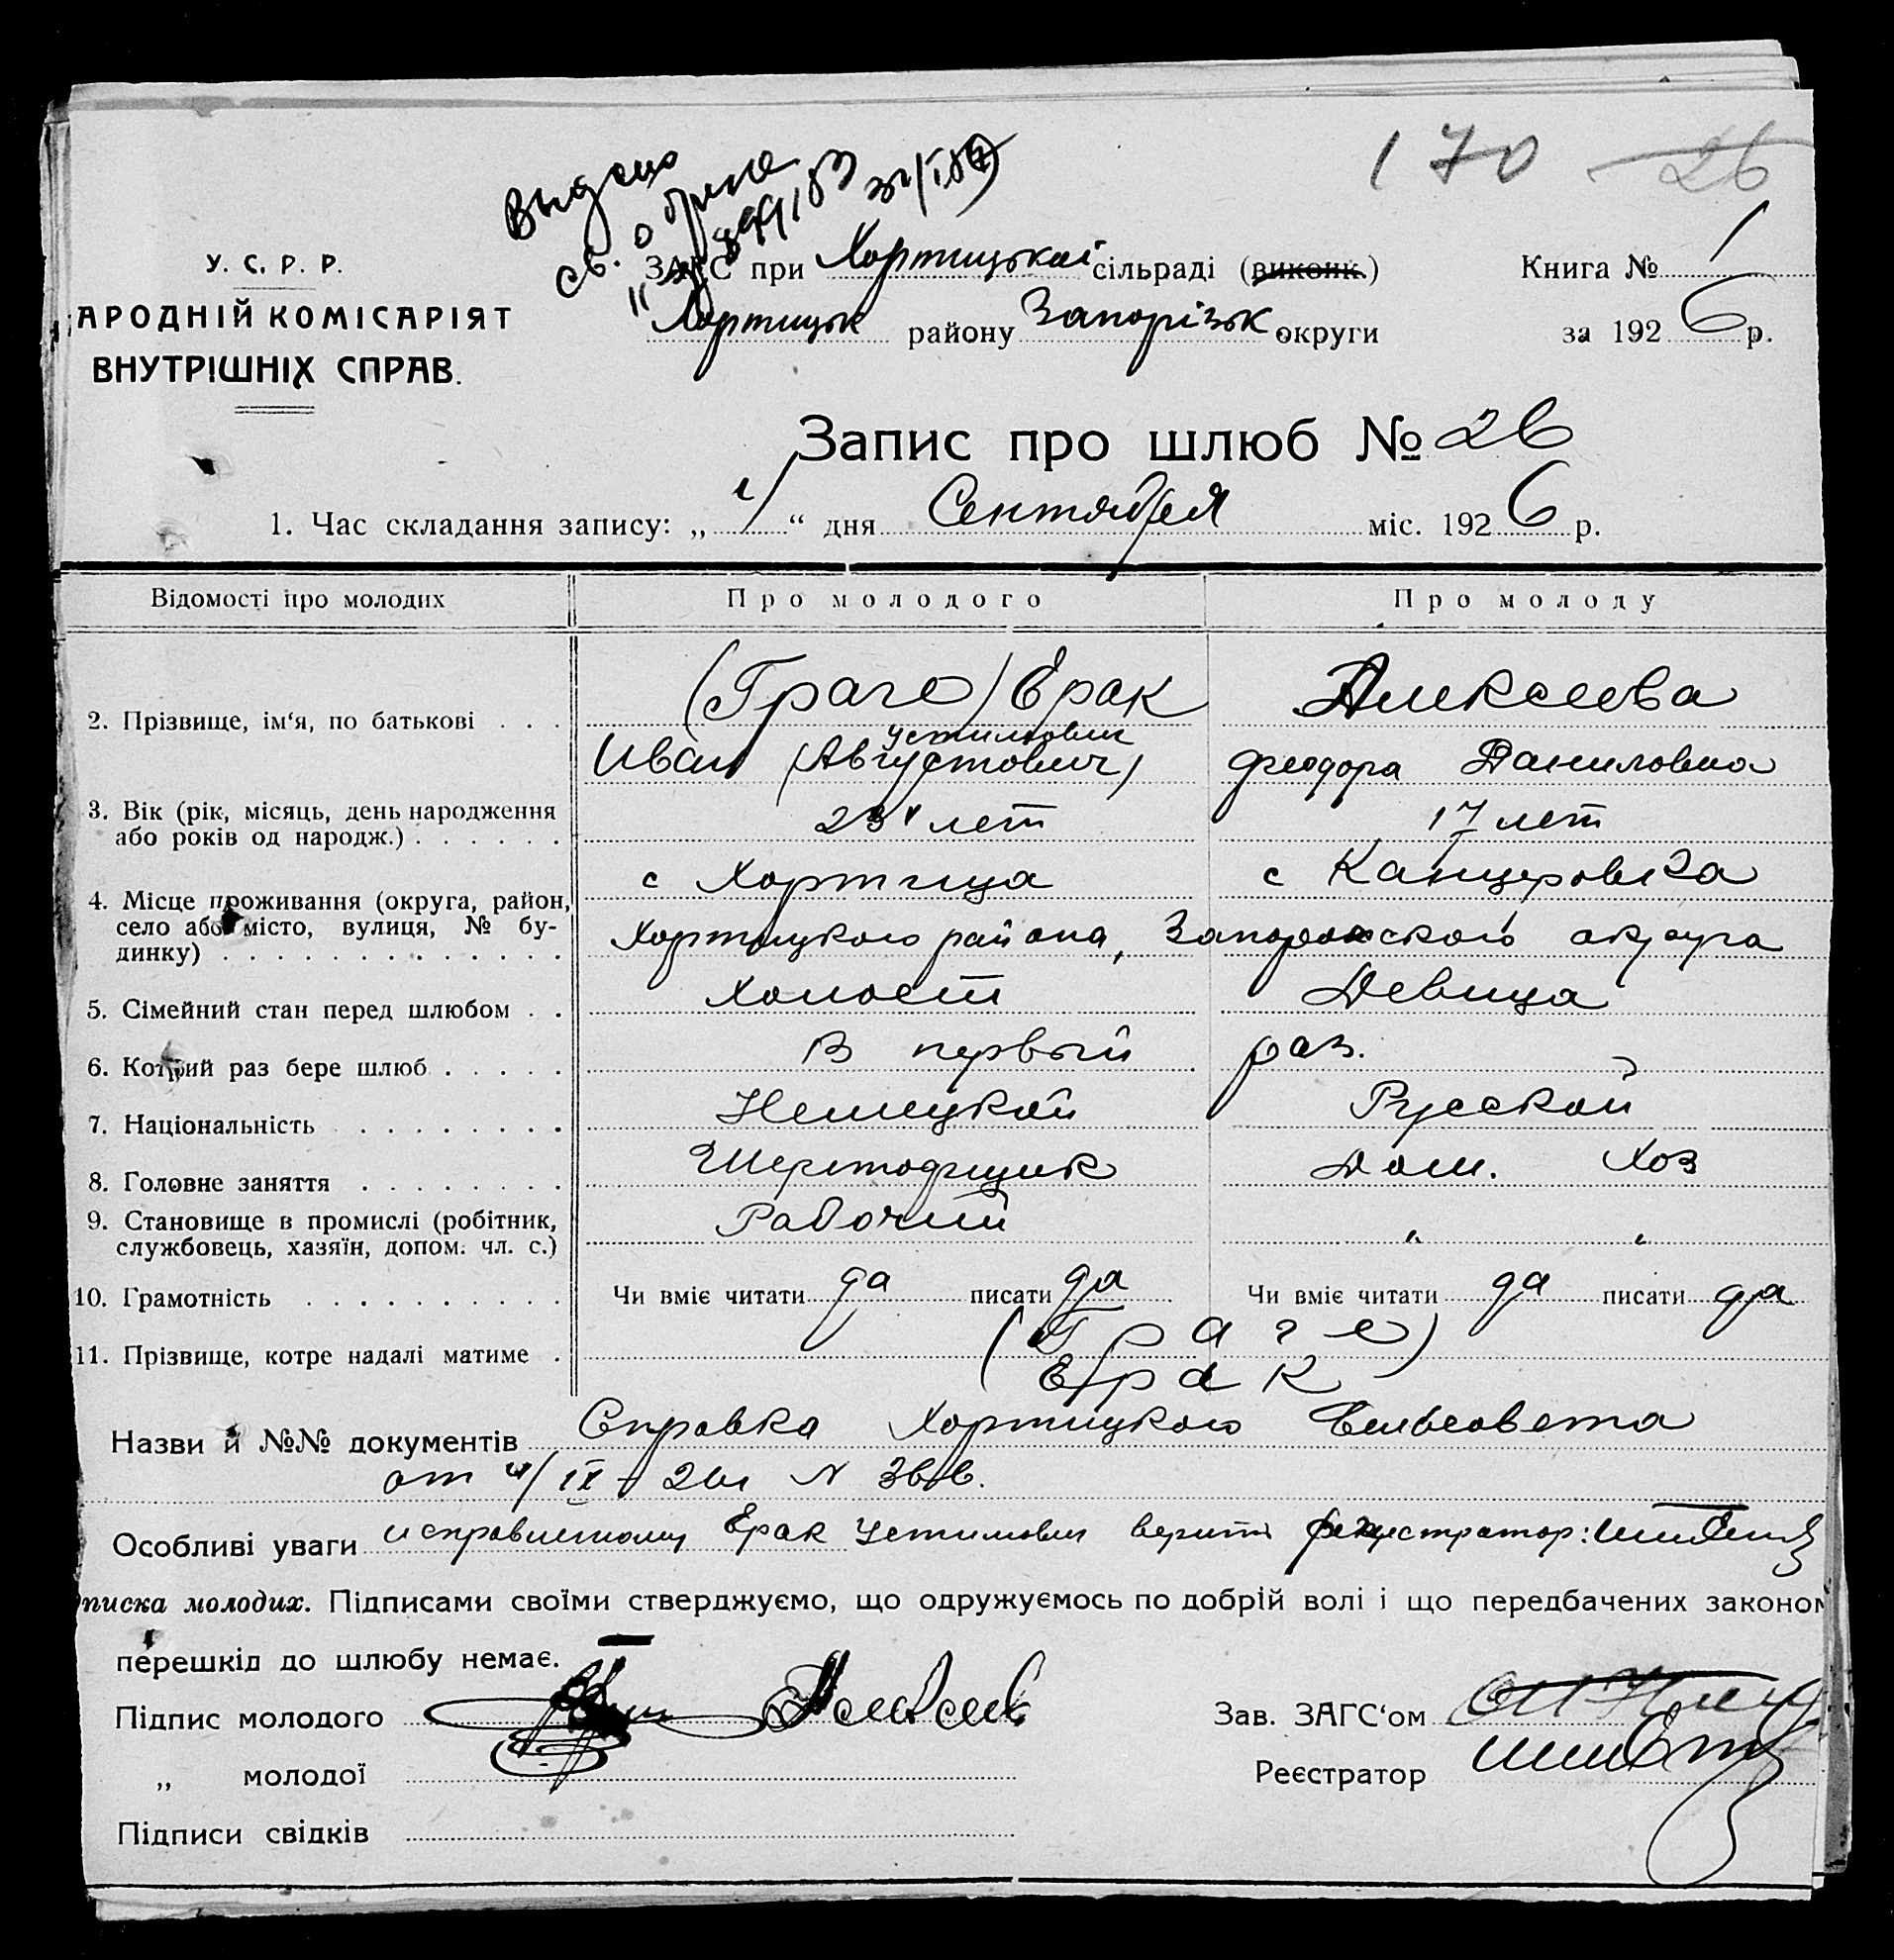 170 26
Выдано
св. о браке
У. С. Р. Р.
ЗАГС при Хортицькій сільраді (виконк.)
Книга № 1
АРОДНІЙ КОМІСАРІЯТ
Хортицьк району Запорізьк округи
за 1926 р.
ВНУТРІШНІХ СПРАВ.
Запис про шлюб № 26
1. Час складання запису: „ 4 “ дня Сентября міс. 1926 р.
Відомості про молодих Про молодого Про молоду
(Граге) Ерак Алексеева
2. Прізвище, ім‘я, по батькові . . .
Устимович
Иван (Августович) Феодора Даниловна
3. Вік (рік, місяць, день народження
або років од народж.) . . . . . .
23 лет 17 лет
с Хортица с Канцеровка
4. Місце проживання (округа, район,
село або місто, вулиця, № бу-
динку) . . . . . . . . . . . . .
Хортицкого района, Запорожского округа
5. Сімейний стан перед шлюбом . . Холост Девица
6. Котрий раз бере шлюб . . . . . В первый раз.
7. Національність . . . . . . . . Немецкой Русской
8. Головне заняття . . . . . . . . Шеретовщик Дом. Хоз
9. Становище в промислі (робітник,
службовець, хазяїн, допом. чл. с.)
Рабочий " "
10. Грамотність . . . . . . . . . . Чи вміє читати да писати да Чи вміє читати да писати да
(Граге)
11. Прізвище, котре надалі матиме .
Ерак
Назви й №№ документів Справка Хортицкого Сельсовета
от 4/IX-26 г N 366.
Особливі уваги исправленному Ерак Устимович верить регистратор:
писка молодих. Підписами своїми стверджуємо, що одружуємось по добрій волі і що передбачених законом
перешкід до шлюбу немає.
Підпис молодого
Зав. ЗАГС‘ом
„ молодої
Реєстратор
Підписи свідків